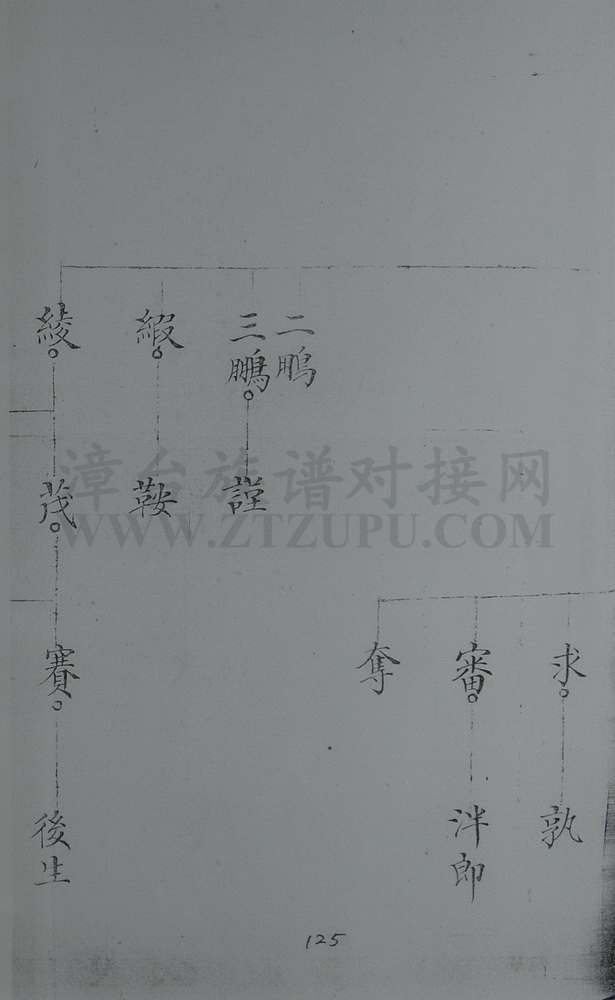 二鵬
三鵬
緞
綾
謹
鞍
茂
求
審
奪
賽
孰
泮郎
後生
漳台族谱对接网
WWW.ZTZUPU.COM
125